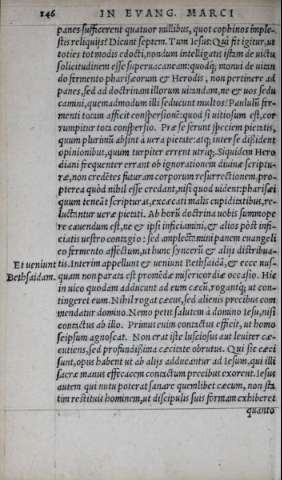 146 IN EVANG. MARCI
panes sufficerent quatuor millibus, quot cophinos imple-
stis reliquijs? Dicunt septem. Tum Iesus: Qui fit igitur, ut
toties tot modis edocti, nondum intelligatis istam de uictu
solicitudinem esse superuacaneam: quodq; monui de uitan
do fermento pharisæorum & Herodis, non pertinere ad
panes, sed ad doctrinam illorum uitandam, ne & uos sedu
camini, quemadmodum illi seducunt multos? Paululũ fer-
menti totam afficit conspersionẽ: quod si uitiosum est, cor
rumpitur tota conspersio. Præ se ferunt speciem pietatis,
quum plurimũ absint à uera pietate: atq; inter se dissident
opinionibus, quum turpiter errent utriq;. Siquidem Hero
diani frequenter errant ob ignorationem diuinæ scriptu-
ræ, non credẽtes futuram corporum resurrectionem, pro-
pterea quòd nihil esse credant, nisi quod uident: pharisæi
quum teneãt scripturas, excæcati malis cupiditatibus, re-
luctantur ueræ pietati. Ab horũ doctrina uobis summope
re cauendum est, ne & ipsi inficiamini, & alios pòst infi-
ciatis uestro contagio: sed amplectemini panem euangeli
co fermento affectum, ut hunc syncerũ & alijs distribua-
Et ueniunt tis. Interim appellunt & ueniunt Bethsaidã, & ecce nus-
Bethsaidam. quam non parata est promẽdæ misericordiæ occasio. Hic
in uico quodam adducunt ad eum cæcũ, rogantq; ut con-
tingeret eum. Nihil rogat cæcus, sed alienis precibus com
mendatur domino. Nemo petit salutem à domino Iesu, nisi
contactus ab illo. Primus enim contactus efficit, ut homo
seipsum agnoscat. Non erat iste lusciosus aut leuiter cæ-
cutiens, sed profundissima cæcitate obrutus. Qui sic cæci
sunt, opus habent ut ab alijs adducantur ad Iesum, qui illi
sacræ manus efficacem contactum precibus exorent. Iesus
autem qui nutu poterat sanare quemlibet cæcum, non sta
tim restituit hominem, ut discipulis suis formam exhiberet
quanto